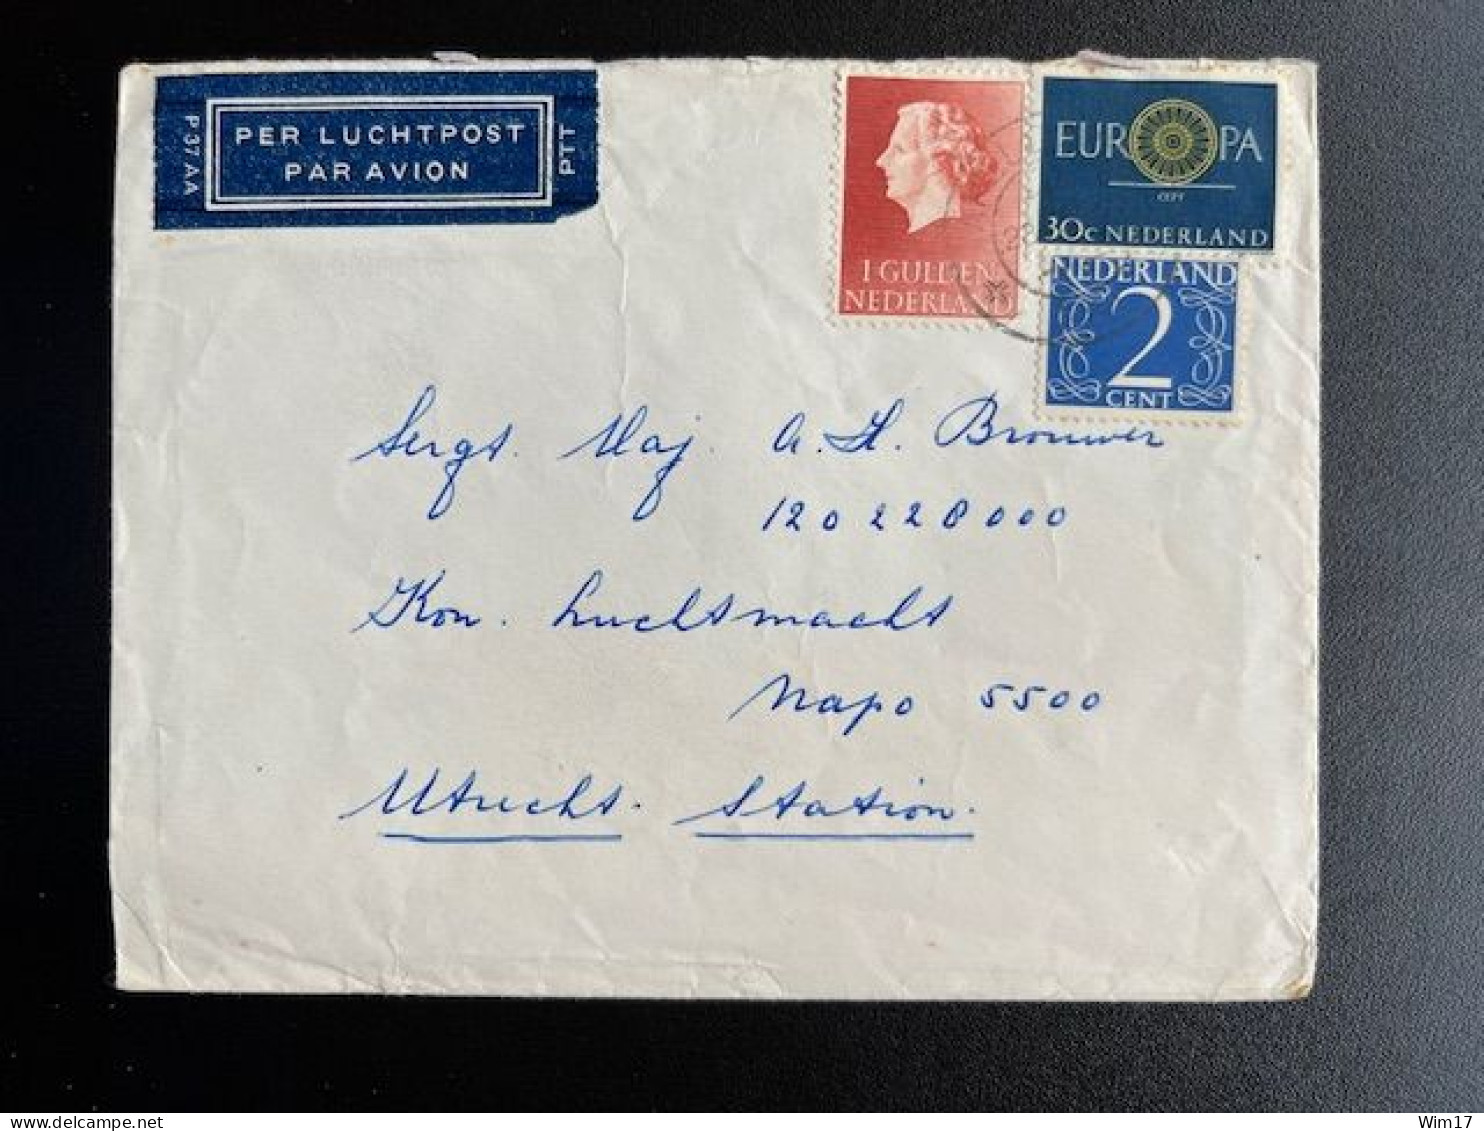 PER LUCHTPOST
PAR AVION
P 37 AA
PTT
1 GULDEN
NEDERLAND
EUROPA
CEPT
30c NEDERLAND
NEDERLAND
2
CENT
Sergt. Maj. A. H. Brouwer
120228000
Kon. Luchtmacht
Napo 5500
Utrecht. Station.
Wim17